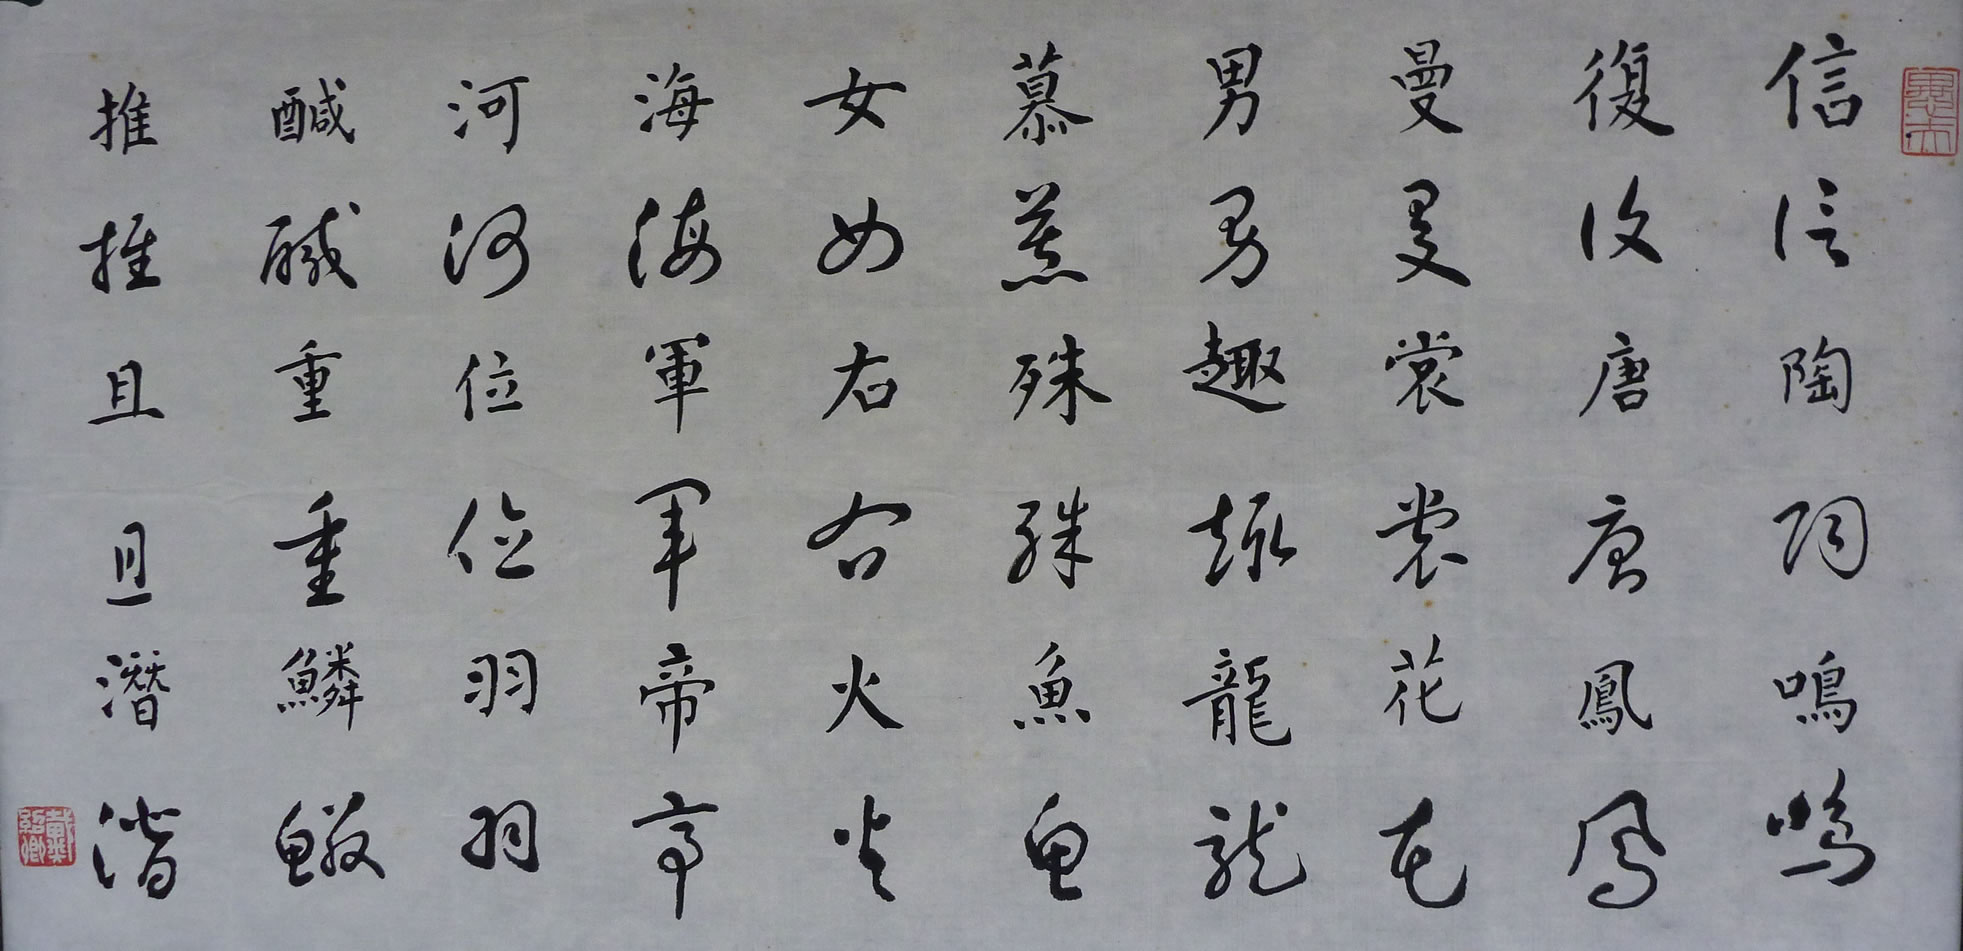 信信陶陶鳴鳴
復復唐唐鳳鳳
曼曼裳裳花花
男男趣趣龍龍
慕慕殊殊魚魚
女女右右火火
海海軍軍帝帝
河河位位羽羽
醎醎重重鱗鱗
推推且且潛潛
戴紹卿